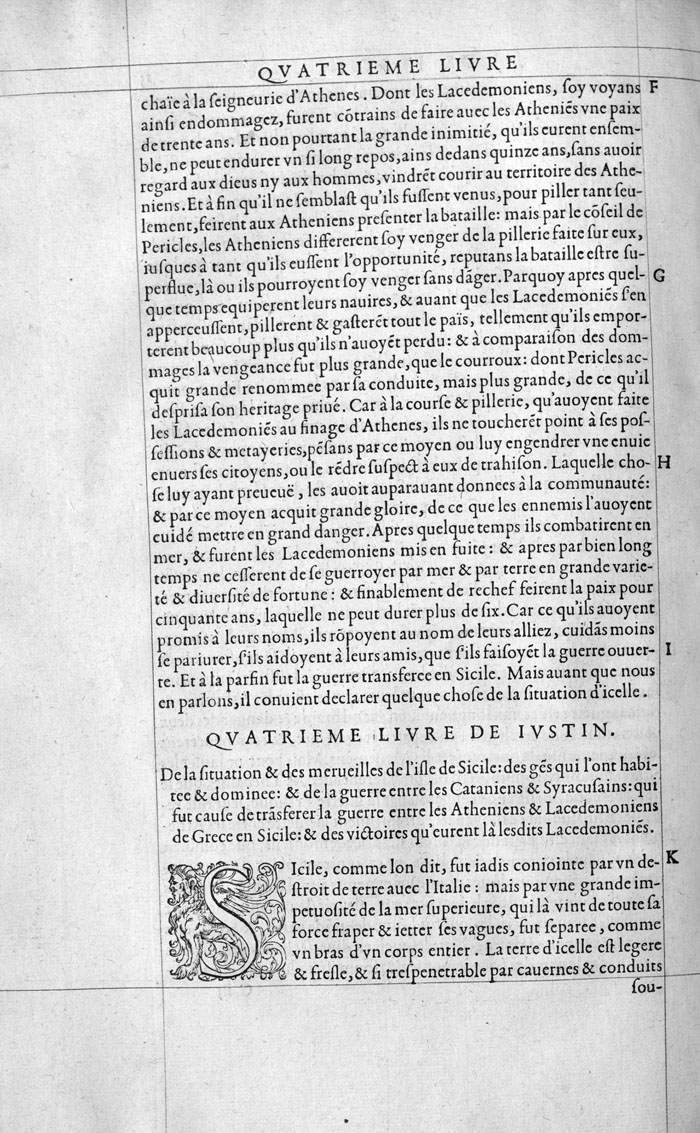 QVATRIEME LIVRE
chaïe à la ſeigneurie d'Athenes. Dont les Lacedemoniens, ſoy voyans F
ainſi endommagez, furent cõtrains de faire auec les Atheniẽs vne paix
de trente ans. Et non pourtant la grande inimitié, qu'ils eurent enſem-
ble, ne peut endurer vn ſi long repos, ains dedans quinze ans, ſans auoir
regard aux dieus ny aux hommes, vindrẽt courir au territoire des Athe-
niens. Et à fin qu'il ne ſemblaſt qu'ils fuſſent venus, pour piller tant ſeu-
lement, feirent aux Atheniens preſenter la bataille: mais par le cõſeil de
Pericles, les Atheniens differerent ſoy venger de la pillerie faite ſur eux,
iuſques à tant qu'ils euſſent l'opportunité, reputans la bataille eſtre ſu-
perflue, là ou ils pourroyent ſoy venger ſans dãger. Parquoy apres quel- G
que temps equiperent leurs nauires, & auant que les Lacedemoniẽs ſ'en
apperceuſſent, pillerent & gaſterẽt tout le païs, tellement qu'ils empor-
terent beaucoup plus qu'ils n'auoyẽt perdu: & à comparaiſon des dom-
mages la vengeance fut plus grande, que le courroux: dont Pericles ac-
quit grande renommee par ſa conduite, mais plus grande, de ce qu'il
deſpriſa ſon heritage priué. Car à la courſe & pillerie, qu'auoyent faite
les Lacedemoniẽs au finage d'Athenes, ils ne toucherẽt point à ſes poſ-
ſeſſions & metayeries, pẽſans par ce moyen ou luy engendrer vne enuie
enuers ſes citoyens, ou le rẽdre ſuſpect à eux de trahiſon. Laquelle cho- H
ſe luy ayant preueuë, les auoit auparauant donnees à la communauté:
& par ce moyen acquit grande gloire, de ce que les ennemis l'auoyent
cuidé mettre en grand danger. Apres quelque temps ils combatirent en
mer, & furent les Lacedemoniens mis en fuite: & apres par bien long
temps ne ceſſerent de ſe guerroyer par mer & par terre en grande varie-
té & diuerſité de fortune: & finablement de rechef feirent la paix pour
cinquante ans, laquelle ne peut durer plus de ſix. Car ce qu'ils auoyent
promis à leurs noms, ils rõpoyent au nom de leurs alliez, cuidãs moins
ſe pariurer, ſ'ils aidoyent à leurs amis, que ſ'ils faiſoyẽt la guerre ouuer- I
te. Et à la parfin fut la guerre transferee en Sicile. Mais auant que nous
en parlons, il conuient declarer quelque choſe de la ſituation d'icelle.
QVATRIEME LIVRE DE IVSTIN.
De la ſituation & des merueilles de l'iſle de Sicile: des gẽs qui l'ont habi-
tee & dominee: & de la guerre entre les Cataniens & Syracuſains: qui
fut cauſe de trãsferer la guerre entre les Atheniens & Lacedemoniens
de Grece en Sicile: & des victoires qu'eurent là leſdits Lacedemoniẽs.
SIcile, comme lon dit, fut iadis coniointe par vn de- K
ſtroit de terre auec l'Italie: mais par vne grande im-
petuoſité de la mer ſuperieure, qui là vint de toute ſa
force fraper & ietter ſes vagues, fut ſeparee, comme
vn bras d'vn corps entier. La terre d'icelle eſt legere
& freſle, & ſi treſpenetrable par cauernes & conduits
ſou-